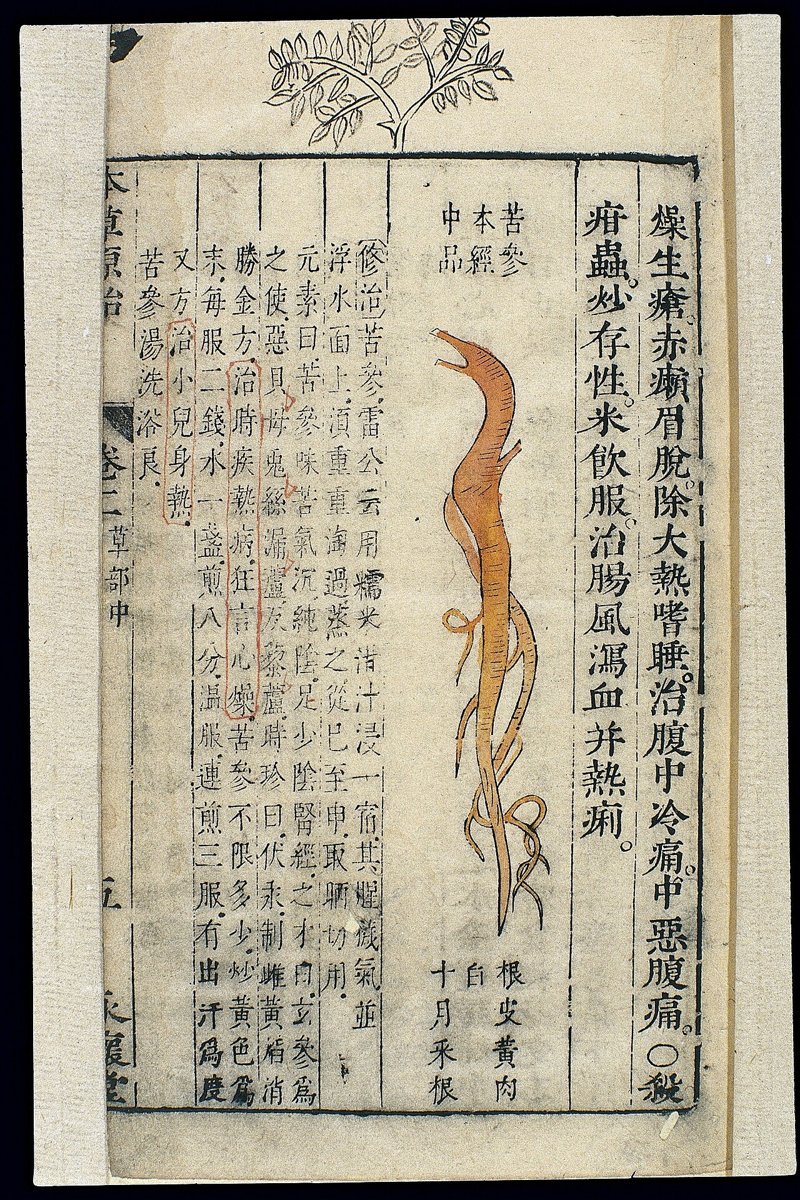 燥生瘡。赤癩眉脫。除大熱嗜睡。治腹中冷痛。中惡腹痛。○殺
疳蟲。炒存性。米飲服。治腸風瀉血并熱痢。
苦參
本經
中品
根皮黃肉
白
十月采根
修治苦參。雷公云用糯米泔汁浸一宿。其腥穢氣並
浮水面上。須重重淘過。蒸之從巳至申。取晒切用。
元素曰。苦參味苦氣沉純陰。足少陰腎經。之才曰。玄參爲
之使。惡貝母兎絲漏蘆。反藜蘆。時珍曰。伏汞。制雌黃焰消
勝金方。治時疾熱病。狂言心燥。苦參不限多少。炒黃色爲
末。每服二錢。水一盞。煎八分。温服。連煎三服。有出汗爲度
又方治小兒身熱。
苦參湯洗浴良。
本草原始
卷二
草部中
五
永懷堂